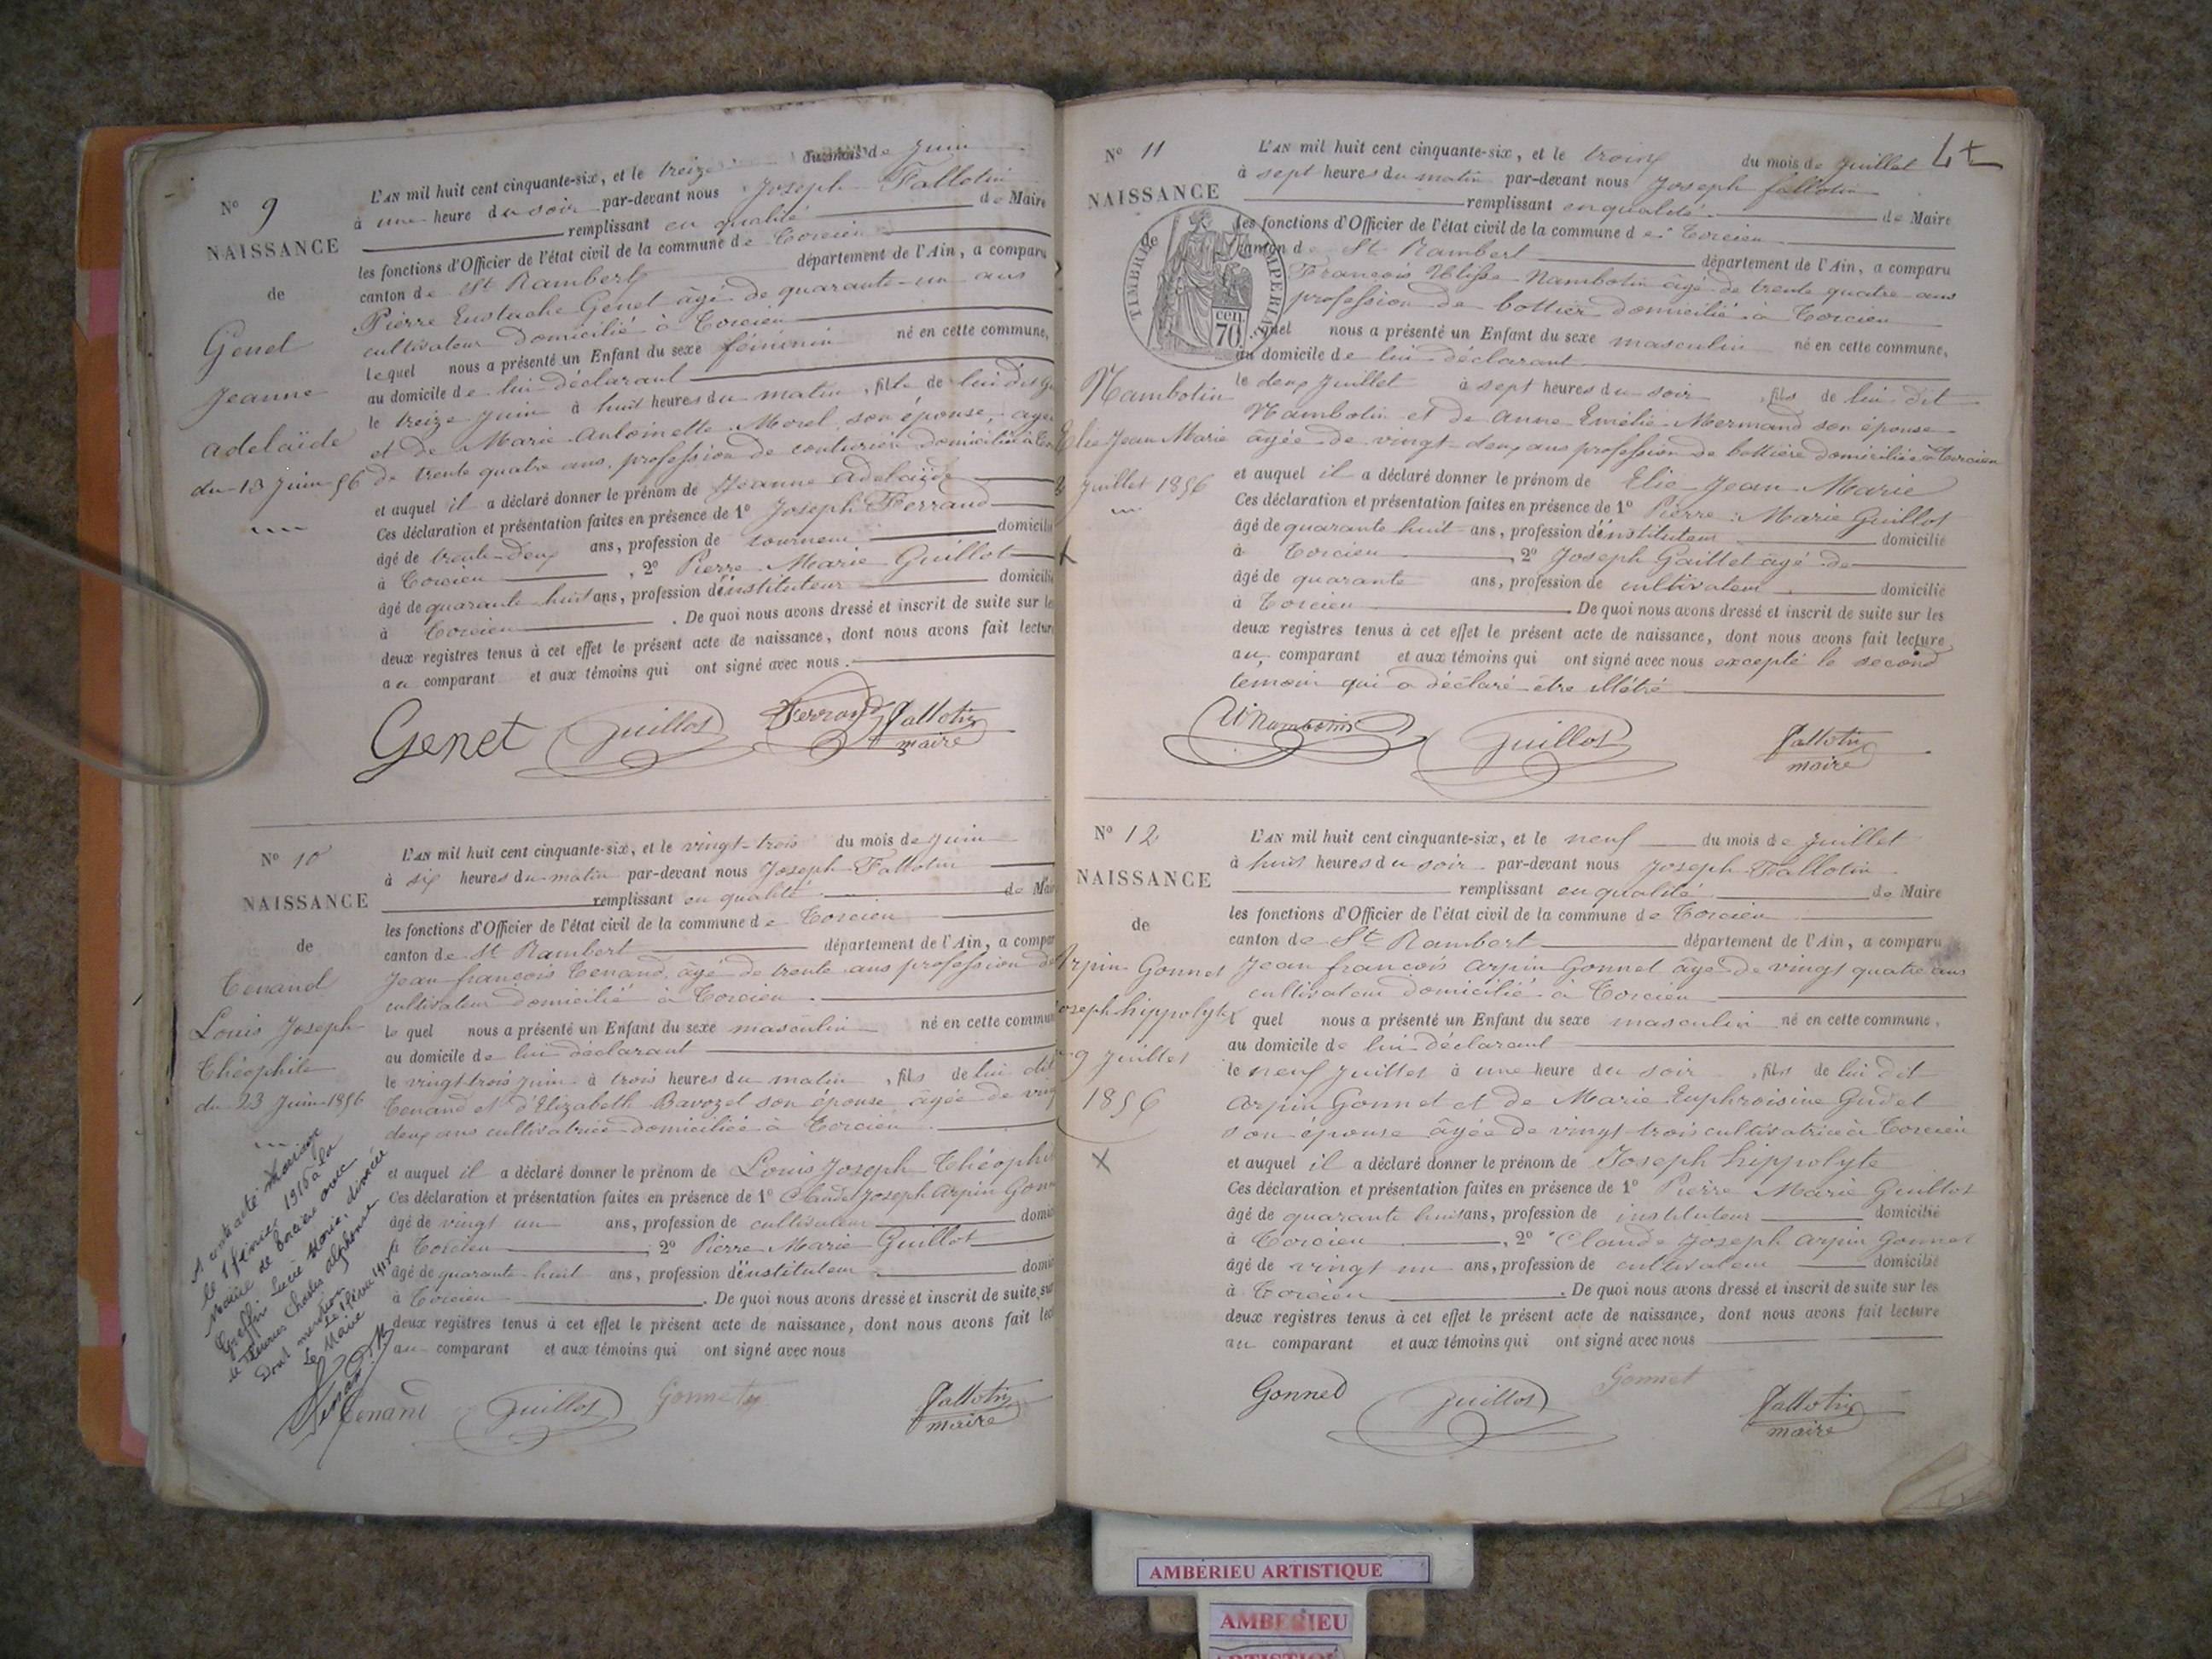 N° 9
NAISSANCE
de
Genet
Jeanne
adelaïde
du 13 Juin 56
L'AN mil huit cent cinquante-six, et le treize du mois de Juin
à une heure du soir par-devant nous Joseph Fallotin
remplissant en qualité de Maire
les fonctions d'Officier de l'état civil de la commune de Torcieu
canton de St Rambert département de l'Ain, a comparu
Pierre Eustache Genet âgé de quarante-un ans
cultivateur domicilié à Torcieu
lequel nous a présenté un Enfant du sexe féminin né en cette commune,
au domicile de lui déclarant
le treize Juin à huit heures du matin, fille de lui dit
et de Marie Antoinette Morel son épouse agée
de trente quatre ans, profession de couturière domiciliée à
et auquel il a déclaré donner le prénom de Jeanne Adelaïde
Ces déclaration et présentation faites en présence de 1° Joseph Ferrand
âgé de trente-deux ans, profession de tourneur domicilié
à Torcieu, 2° Pierre Marie Guillot
âgé de quarante huit ans, profession d'instituteur domicilié
à Torcieu. De quoi nous avons dressé et inscrit de suite sur les
deux registres tenus à cet effet le présent acte de naissance, dont nous avons fait lecture
au comparant et aux témoins qui ont signé avec nous.
Genet Guillot Ferrand Fallotin
maire
N° 10
NAISSANCE
de
Tenand
Louis Joseph
Théophile
du 23 Juin 1856
A contracté mariage
le 1 février 1918 à la
Mairie de Torcieu avec
Greffin Lucie Marie, divorcée
de Charles Alphonse
Dont mention
Le 1 février 1918
Le Maire
L'AN mil huit cent cinquante-six, et le vingt-trois du mois de Juin
à six heures du matin par-devant nous Joseph Fallotin
remplissant en qualité de Maire
les fonctions d'Officier de l'état civil de la commune de Torcieu
canton de St Rambert département de l'Ain, a comparu
Jean françois Tenand, âgé de trente ans profession de
cultivateur domicilié à Torcieu
le quel nous a présenté un Enfant du sexe masculin né en cette commune
au domicile de lui déclarant
le vingt-trois Juin à trois heures du matin, fils de lui dit
Tenand et d'Elizabeth Bavozet son épouse âgée de vingt
deux ans cultivatrice domiciliée à Torcieu
et auquel il a déclaré donner le prénom de Louis Joseph Théophile
Ces déclaration et présentation faites en présence de 1° Claude Joseph Arpin Gonnet
âgé de vingt un ans, profession de cultivateur domicilié
à Torcieu, 2° Pierre Marie Guillot
âgé de quarante-huit ans, profession d'instituteur domicilié
à Torcieu. De quoi nous avons dressé et inscrit de suite sur
deux registres tenus à cet effet le présent acte de naissance, dont nous avons fait lec
au comparant et aux témoins qui ont signé avec nous
Tenand Guillot Gonnet Fallotin
maire
N° 11
NAISSANCE
de
TIMBRE IMPERIAL
70 cen.
Nambotin
Elie Jean Marie
2 Juillet 1856
L'AN mil huit cent cinquante-six, et le trois du mois de Juillet
à sept heures du matin par-devant nous Joseph fallotin
remplissant en qualité de Maire
les fonctions d'Officier de l'état civil de la commune de Torcieu
canton de St Rambert département de l'Ain, a comparu
François Ulisse Nambotin âgé de trente quatre ans
profession de bottier domicilié à Torcieu
lequel nous a présenté un Enfant du sexe masculin né en cette commune,
au domicile de lui déclarant
le deux Juillet à sept heures du soir, fils de lui dit
Nambotin et de Anne Emélie Mermand son épouse
âgée de vingt-deux ans profession de bottière domiciliée à Torcieu
et auquel il a déclaré donner le prénom de Elie Jean Marie
Ces déclaration et présentation faites en présence de 1° Pierre Marie Guillot
âgé de quarante huit ans, profession d'instituteur domicilié
à Torcieu, 2° Joseph Gaillet âgé de
âgé de quarante ans, profession de cultivateur domicilié
à Torcieu. De quoi nous avons dressé et inscrit de suite sur les
deux registres tenus à cet effet le présent acte de naissance, dont nous avons fait lecture
au comparant et aux témoins qui ont signé avec nous excepté le second
temoin qui a déclaré être illétré
Nambotin Guillot Fallotin
maire
N° 12
NAISSANCE
de
Arpin Gonnet
Joseph hippolyte
9 Juillet
1856
L'AN mil huit cent cinquante-six, et le neuf du mois de Juillet
à huit heures du soir par-devant nous Joseph Fallotin
remplissant en qualité de Maire
les fonctions d'Officier de l'état civil de la commune de Torcieu
canton de St Rambert département de l'Ain, a comparu
Jean françois Arpin Gonnet âgé de vingt quatre ans
cultivateur domicilié à Torcieu
le quel nous a présenté un Enfant du sexe masculin né en cette commune,
au domicile de lui déclarant
le neuf Juillet à une heure du soir, fils de lui dit
Arpin Gonnet et de Marie Euphroisine Gudet
son épouse âgée de vingt trois cultivatrice à Torcieu
et auquel il a déclaré donner le prénom de Joseph hippolyte
Ces déclaration et présentation faites en présence de 1° Pierre Marie Guillot
âgé de quarante huit ans, profession de instituteur domicilié
à Torcieu, 2° Claude Joseph Arpin Gonnet
âgé de vingt un ans, profession de cultivateur domicilié
à Torcieu. De quoi nous avons dressé et inscrit de suite sur les
deux registres tenus à cet effet le présent acte de naissance, dont nous avons fait lecture
au comparant et aux témoins qui ont signé avec nous
Gonnet Guillot Gonnet Fallotin
maire
AMBÉRIEU ARTISTIQUE
AMBERIEU
ARTISTIQUE